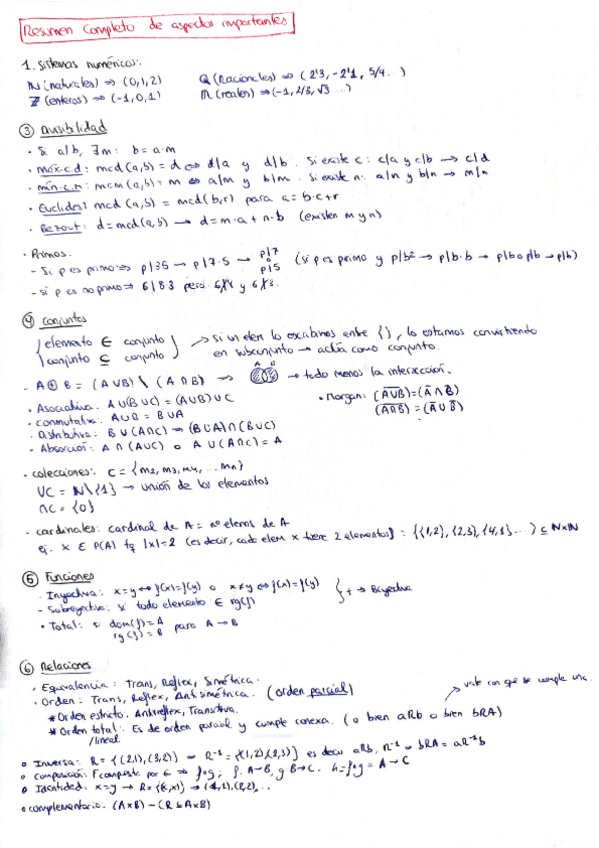 Resumen Completo de aspectos importantes
1. Sistemas numéricos:
ℕ (naturales) ⇒ (0,1,2)
ℚ (Racionales) ⇒ (2'3, -2'1, 5/4...)
ℤ (enteros) ⇒ (-1,0,1)
ℝ (reales) ⇒ (-1, 2/3, √3 ...)
③ Divisibilidad
· Si a/b, ∃m: b = a·m
· máx.c.d: mcd(a,b) = d ⇔ d/a y d/b. Si existe c: c/a y c/b → c/d
· mín.c.m: mcm(a,b) = m ⇔ a/m y b/m. Si existe n: a/n y b/n → m/n
· Euclides: mcd(a,b) = mcd(b,r) para a = b·c+r
· Bezout: d = mcd(a,b) → d = m·a + n·b (existen m y n)
· Primos:
- Si p es primo ⇒ p/35 → p/7·5 → p/7 o p/5 (si p es primo y p/b² → p/b·b → p/b o p/b → p/b)
- si p es no primo ⇒ 6/8·3 pero 6∤8 y 6∤3.
④ Conjuntos
{elemento ∈ conjunto
conjunto ⊆ conjunto}
→ si un elem lo escribimos entre { }, lo estamos convirtiendo
en subconjunto → actúa como conjunto.
A B
- A ⊕ B = (A∪B) \ (A∩B) ⇒ → todo menos la intersección.
· Asociativa: A∪(B∪C) = (A∪B)∪C
· Morgan: (A̅∪̅B̅) = (A̅ ∩ B̅)
· conmutativa: A∪B = B∪A
(A̅∩̅B̅) = (A̅ ∪ B̅)
· Distributiva: B∪(A∩C) ⇒ (B∪A)∩(B∪C)
· Absorción: A∩(A∪C) o A∪(A∩C) = A
· colecciones: C = {m2, m3, m4, ... mn}
∪C = ℕ\{1} → unión de los elementos
∩C = {0}
· cardinales: cardinal de A = nº elems de A
ej. x ∈ P(A) tq |x|=2 (es decir, cada elem x tiene 2 elementos) : {{1,2}, {2,3}, {4,1}...} ⊆ ℕ×ℕ
⑤ Funciones
· Inyectiva: x=y ⇔ f(x)=f(y) o x≠y ⇔ f(x)=f(y)
- Sobreyectiva: si todo elemento ∈ rg(f)
} + → Biyectiva
· Total: si dom(f)=A
rg(f)=B para A→B
⑥ Relaciones
· Equivalencia: Trans, Reflex, Simétrica.
· Orden: Trans, Reflex, Antisimétrica. (orden parcial)
vale con que se cumple una
* Orden estricto: Antireflex, Transitiva.
* Orden total: Es de orden parcial y cumple conexa. (o bien aRb o bien bRA)
/lineal
o Inversa: R = {(2,1),(3,2)} ⇒ R⁻¹ = {(1,2),(2,3)} es decir aRb, R⁻¹ ⇒ bRA = aR⁻¹b
o composición: F compuesta por G ⇒ f∘g; f: A→B, g B→C. h=f∘g = A→C
o Identidad: x=y → R={(x,x)} ⇒ (1,1),(2,2),...
o complementario: (A×B) - (R⊆A×B)